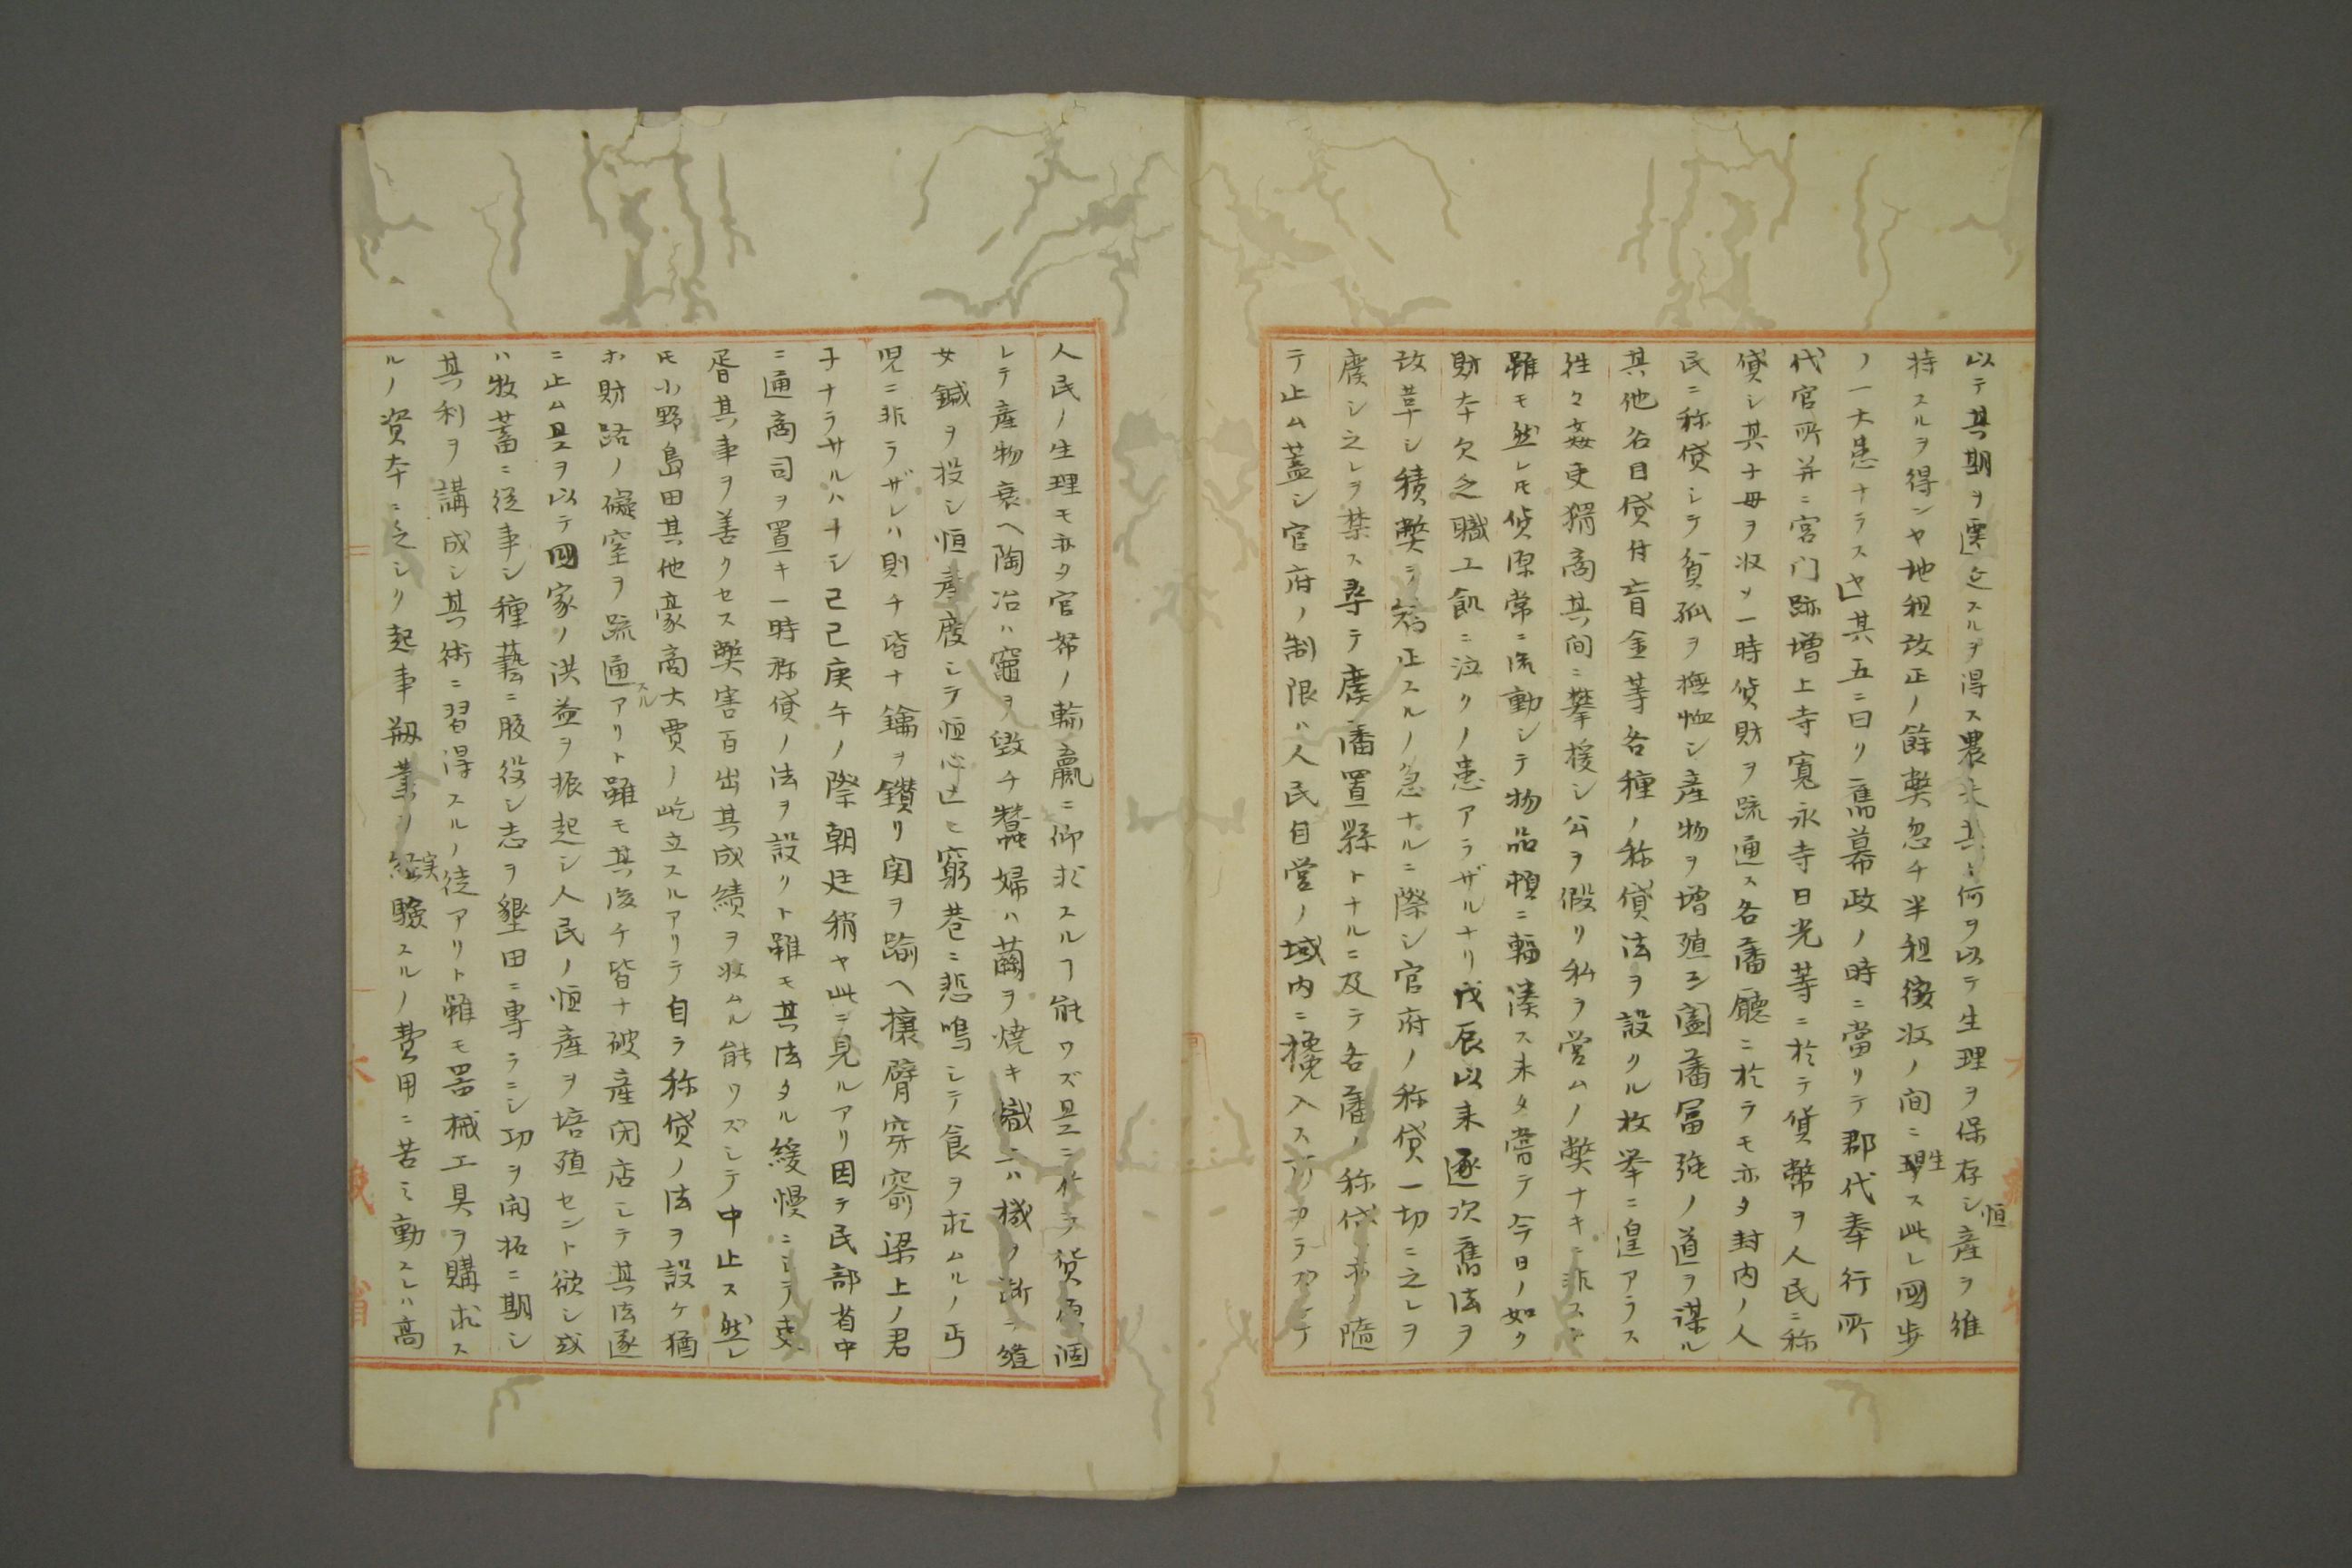 以テ其期ヲ遷延スルヲ得ス農夫其レ何ヲ以テ生理ヲ保存シ恒産ヲ維
持スルヲ得ンヤ地租改正ノ餘弊忽チ半租徴收ノ間ニ生ス此レ國歩
ノ一大患ナラスヤ」其五ニ曰リ舊幕政ノ時ニ當リテ郡代奉行所
代官所并ニ宮门跡増上寺寛永寺日光等ニ於テ貨幣ヲ人民ニ称
貸シ其子母ヲ收メ一時貨財ヲ疏通ス各藩廳ニ於テモ亦タ封内ノ人
民ニ称貸シテ貧孤ヲ撫恤シ産物ヲ増殖シ闔藩冨強ノ道ヲ謀ル
其他名目貸付盲金等各種ノ称貸法ヲ設クル枚挙ニ遑アラス
往々姦吏猾商其间ニ攀援シ公ヲ假リ私ヲ営ムノ弊ナキニ非スト
雖モ然レ𪜈貨原常ニ流動シテ物品頓ニ輻湊ス未タ嘗テ今日ノ如ク
財本欠乏職工飢ニ泣クノ患アラザルナリ戊辰以来逐次舊法ヲ
改革シ積弊ヲ矯正スルノ急ナルニ際シ官府ノ称貸一切ニ之レヲ
廃シ之レヲ禁ス尋テ廃藩置縣トナルニ及テ各藩ノ称貸亦タ隨
テ止ム蓋シ官府ノ制限ハ人民自営ノ域内ニ攙入ス可カラズシテ
人民ノ生理モ亦タ官帑ノ輸贏ニ仰求スルヿ能ワズ是ニ於テ貨原涸
レテ産物衰ヘ陶冶ハ竈ヲ毀チ蠶婦ハ繭ヲ焼キ織工ハ機ヲ断チ縫
女鍼ヲ投シ恒産廃シテ恒心亡ヒ窮巷ニ悲鳴シテ食ヲ求ムルノ丐
児ニ非ラザレハ則チ皆ナ鑰ヲ鑚リ関ヲ踰ヘ攘臂穿窬梁上ノ君
子ナラサルハナシ己巳庚午ノ際朝廷稍ヤ此ニ見ルアリ因テ民部省中
ニ通商司ヲ置キ一時称貸ノ法ヲ設クト雖モ其法タル緩慢ニシテ吏
胥其事ヲ善クセス弊害百出其成績ヲ收ムル能ワズシテ中止ス然レ
𪜈小野島田其他豪商大賈ノ屹立スルアリテ自ラ称貸ノ法ヲ設ケ猶
ホ財路ノ礙窒ヲ疏通スルアリト雖モ其後チ皆ナ破産闭店シテ其法遂
ニ止ム是ヲ以テ國家ノ洪益ヲ振起シ人民ノ恒産ヲ培殖セント欲シ或
ハ牧蓄ニ従事シ種藝ニ服役シ志ヲ墾田ニ專ラニシ功ヲ開拓ニ期シ
其利ヲ講成シ其術ニ習得スルノ徒アリト雖モ器械工具ヲ購求ス
ルノ資本ニ乏シク起事剏業シ実験スルノ費用ニ苦ミ動スレハ高